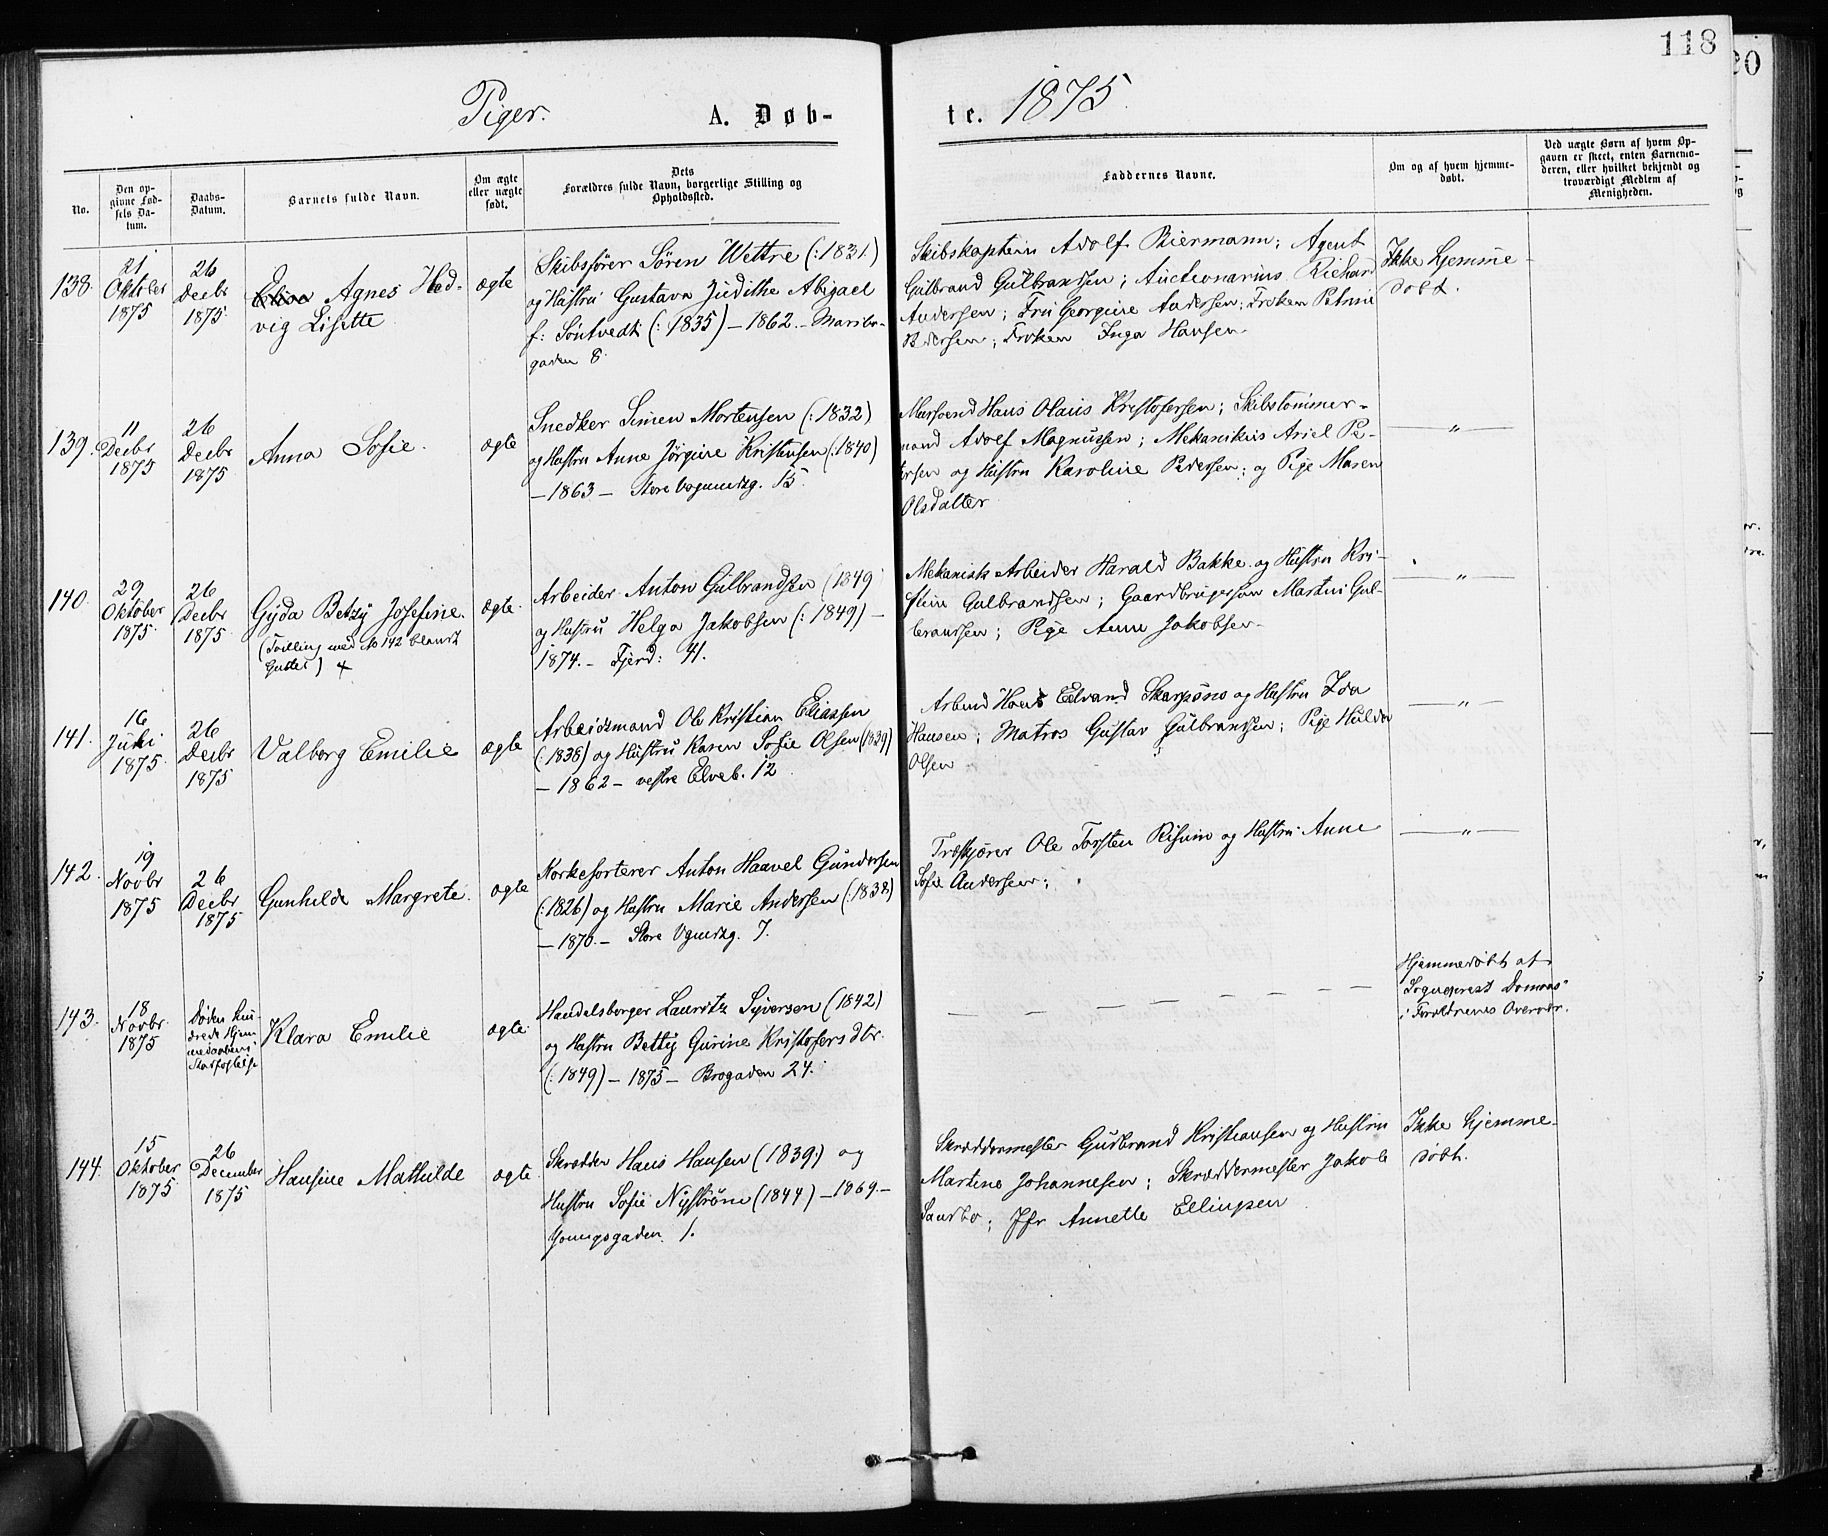 118
20
Piger. A. Døb-
te. 1875.
No.
Den op-
givne Fød-
sels Da-
tum.
Daabs-
Datum.
Barnets fulde Navn.
Om ægte
eller uægte
født.
Dets
Forældres fulde Navn, borgerlige Stilling og
Opholdssted.
Faddernes Navne.
Om og af hvem hjemme-
døbt.
Ved uægte Børn af hvem Op-
gaven er skeet, enten Barnemo-
deren, eller hvilket bekjendt og
troværdigt Medlem af
Menigheden.
138.
21
Oktober
1875
26
Decbr
1875.
Agnes Hed-
vig Lisette
ægte
Skibsfører Sören Wettre (: 1831.)
og Hustru Gustava Judithe Abigael
f: Söntvedt (: 1835) – 1862. – Maribo-
gaden 8.
Skibskaptein Adolf Biermann; Agent
Gulbrand Gulbrandsen; Auctionarius Richard
Andersen; Fru Georgine Andersen; Frøken Petrine
Pedersen; Frøken Inga Hansen.
Ikke hjemme-
døbt.
139.
11
Decbr
1875
26
Decbr
1875.
Anna Sofie.
ægte
Snedker Simen Mortensen (: 1832)
og Hustru Anne Jørgine Kristensen (: 1840)
– 1863 – Store Vognmdsg. 15.
Hans Olaus Kristofersen; Skibstømmer-
mand Adolf Magnussen; Mekanikus Ariel Pe-
dersen og Hustru Karoline Pedersen; og Pige Maren
Olsdatter
— " —
140.
29
Oktober
1875.
26
Decbr
1875
Gyda Betzy Josefine.
(Tvilling med No 142 blandt
Gutter) +
ægte.
Arbeider Anton Gulbrandsen (1849
og Hustru Helga Jakobsen (: 1849) –
1874. – Fjerd: 41.
Mekanisk Arbeider Harald Bakke og Hustru Kri-
stine Gulbrandsen; Gaardbrugersøn Martin Gul-
branssen; Pige Anne Jakobsen.
— " —
141.
16
Juli
1875.
26
Decbr
1875
Valborg Emilie
ægte
Arbeidsmand Ole Kristian Eliassen
(: 1838) og Hustru Karen Sofie Olsen (1839)
– 1862 – vestre Elveb. 12
Arbmd Hans Edvard Skarpsno og Hustru Ida
Hansen; Matros Gustav Gulbranssen; Pige Hulda
Olsen
— " —
142.
19
Novbr
1875
26
Decbr
1875
Gunhilde Margrete.
ægte
Korkesorterer Anton Haavel Gundersen
(: 1826) og Hustru Marie Andersen (: 1838)
– 1870. – Store Vgmdsg. 7.
Træskjærer Ole Torsten Risum og Hustru Anne
Sofie Andersen;
— " —
143.
18
Novbr.
1875
Døden hin-
drede Hjem-
medaabens
Stadfæstelse
Klara Emilie
ægte.
Handelsborger Lauritz Syversen (1842)
og Hustru Betty Gurine Kristofersdtr.
(: 1849) – 1875 – Brogaden 24.
— — — — — — —
Hjemmedøbt af
Sogneprest Domaas
i Forældrenes Overvær.
144.
15
Oktober
1875
26
December
1875
Hansine Mathilde
ægte
Skrædder Hans Hansen (1839.) og
Hustru Sofie Nystrøm (1844) – 1869. –
Youngsgaden 1.
Skræddermester Gudbrand Kristiansen og Hustru
Martine Johannesen; Skræddermester Jakob
Saurbo; Jfr Annette Ellingsen
Ikke hjemme-
døbt.